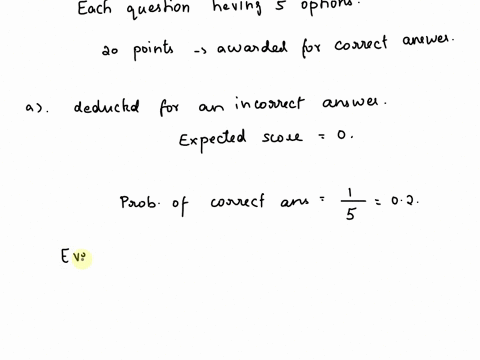 Each question having 5 options.
20 points → awarded for correct answer.
a). deducted for an incorrect answer.
Expected score = 0.
Prob. of correct ans = 1/5 = 0.2.